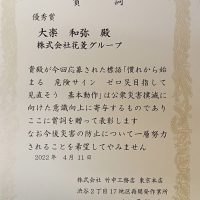 賞詞
優秀賞
大楽 和弥 殿
株式会社花菱グループ
貴殿が今回応募された標語「慣れから始
まる 危険サイン ゼロ災目指して
見直そう 基本動作」は公衆災害撲滅に
向けた意識向上に寄与するものであり
ここに賞詞を贈って表彰します
なお今後災害の防止について一層努力
されることを希望してやみません
2022年 4月11日
株式会社 竹中工務店 東京本店
渋谷２丁目17地区再開発作業所